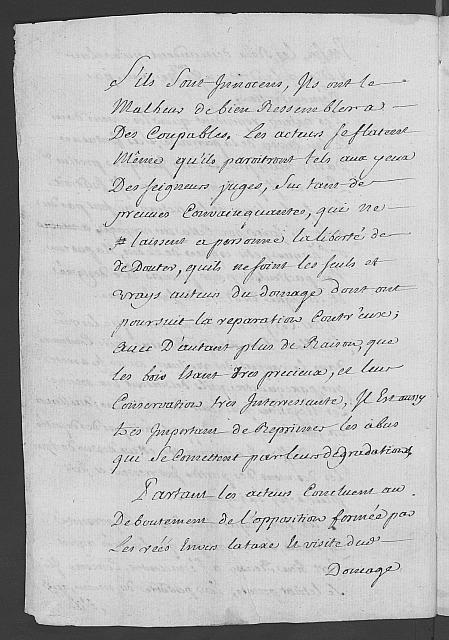 S'ils Sont Innocens, Ils ont le
Malheur de bien Ressembler a
Des Coupables. Les acteurs se flatent
Même qu'ils paroitront tels aux yeux
Des seigneurs juges, Sur tant de
preuves Convainquantes, qui ne
laissent a personne la liberté de
de Douter, quils ne soint les seuls et
vrays auteurs du domage dont ont
poursuit la reparation Contr'eux;
avec D'autant plus de Raison, que
les bois Etant tres precieux, et leur
Conservation tres Interressante, Il Est aussy
tres Important de Reprimer les abus
qui se Comettent par leurs degradations,
Partant les acteurs Concluent au
Deboutement de l'opposition formée par
Les réés Envers la taxe et visite dud
Domage